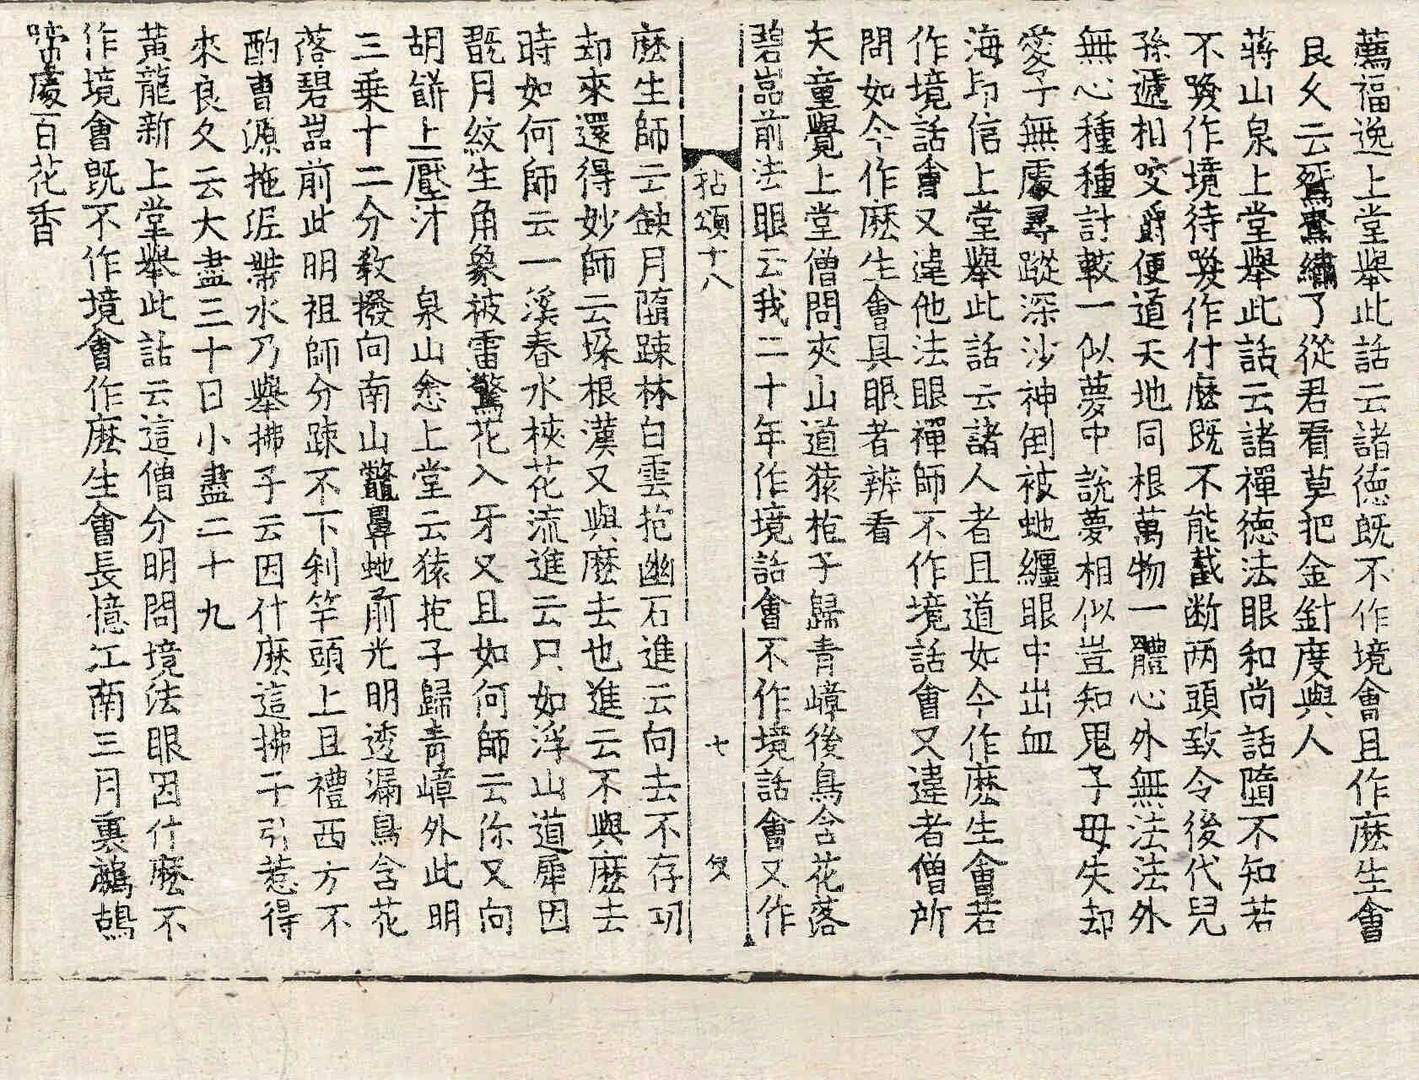 薦福逸上堂舉此話云諸德旣不作境會且作麽生會
良久云鴛鴦繡了從君看莫把金針度與人
蔣山泉上堂舉此話云諸禪德法眼和尚話墮不知若
不喚作境待喚作什麽旣不能截断两頭致令後代兒
孫遞相咬爵便道天地同根萬物一體心外無法法外
無心種種計較一似夢中說夢相似豈知鬼子母失却
愛子無處尋蹤深沙神倒被虵纏眼中出血
海印信上堂舉此話云諸人者且道如今作麽生會若
作境話會又違他法眼禪師不作境話會又違者僧所
問如今作麽生會具眼者辨看
天童覺上堂僧問夾山道猿抱子歸青嶂後鳥含花落
碧嵓前法眼云我二十年作境話會不作境話會又作
拈頌十八 七
麽生師云蝕月隨踈林白雲抱幽石進云向去不存功
却來還得妙師云垛根漢又與麽去也進云不與麽去
時如何師云一溪春水挾花流進云只如浮山道犀因
翫月紋生角象被雷驚花入牙又且如何師云你又向
胡餅上壓汁 泉山愈上堂云猿抱子歸青嶂外此明
三乗十二分教撥向南山鼈鼻虵前光明透漏鳥含花
落碧嵓前此明祖師分踈不下刹竿頭上且禮西方不
酌曹源拖泥帶水乃舉拂子云因什麽這拂子引惹得
來良久云大盡三十日小盡二十九
黃龍新上堂舉此話云這僧分明問境法眼因什麽不
作境會旣不作境會作麽生會長憶江南三月裏鷓鴣
啼處百花香